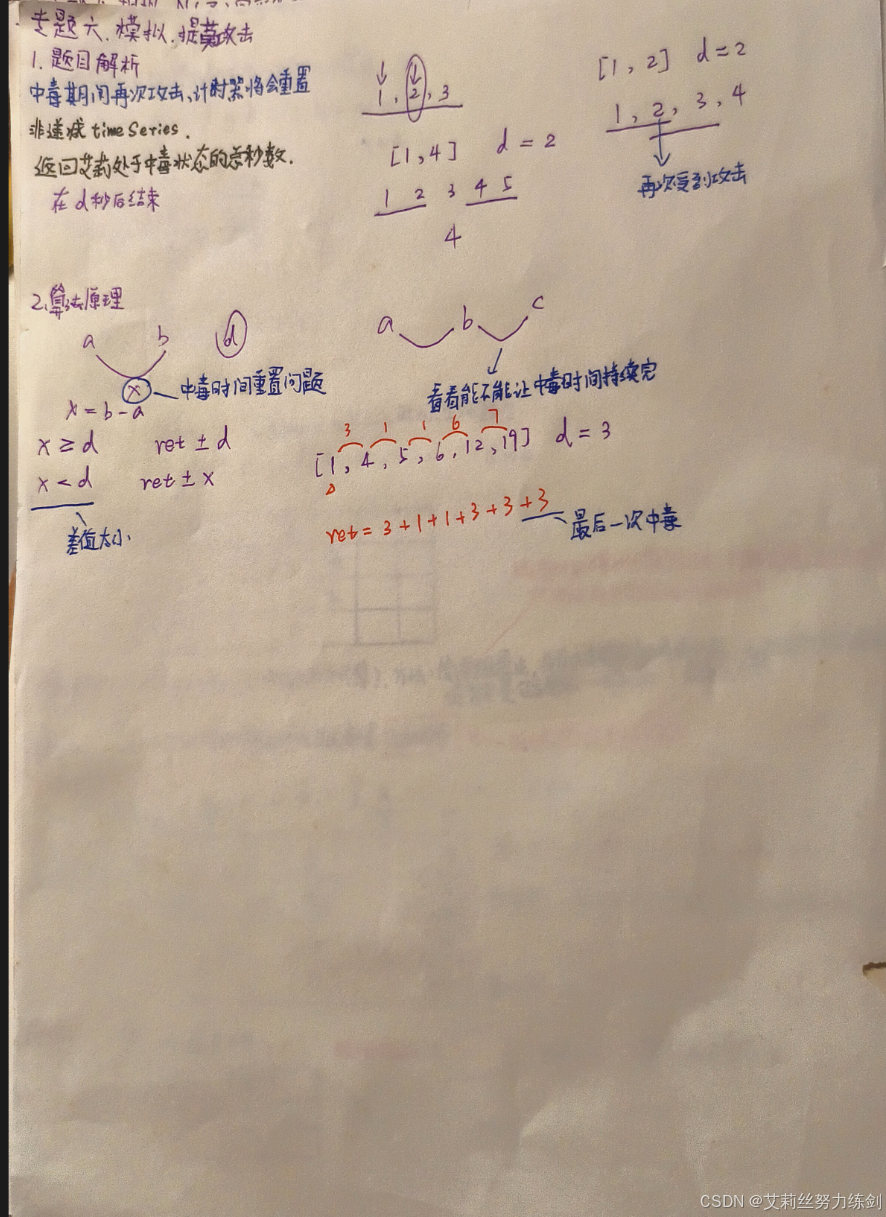 专题六、模拟.提莫攻击
1.题目解析
中毒期间再次攻击、计时器将会重置
非递减timeSeries.
返回艾希处于中毒状态的总秒数.
在d秒后结束
1,2,3
[1,4] d=2
1 2 3 4 5
4
[1,2] d=2
1,2,3,4
再次受到攻击
2.算法原理
a b d
x 中毒时间重置问题
x=b-a
x≥d ret ± d
x<d ret ± x
差值大小
a b c
看看能不能让中毒时间持续完
3 1 1 6 7
[1,4,5,6,12,19] d=3
ret=3+1+1+3+3+3
最后一次中毒
CSDN @艾莉丝努力练剑